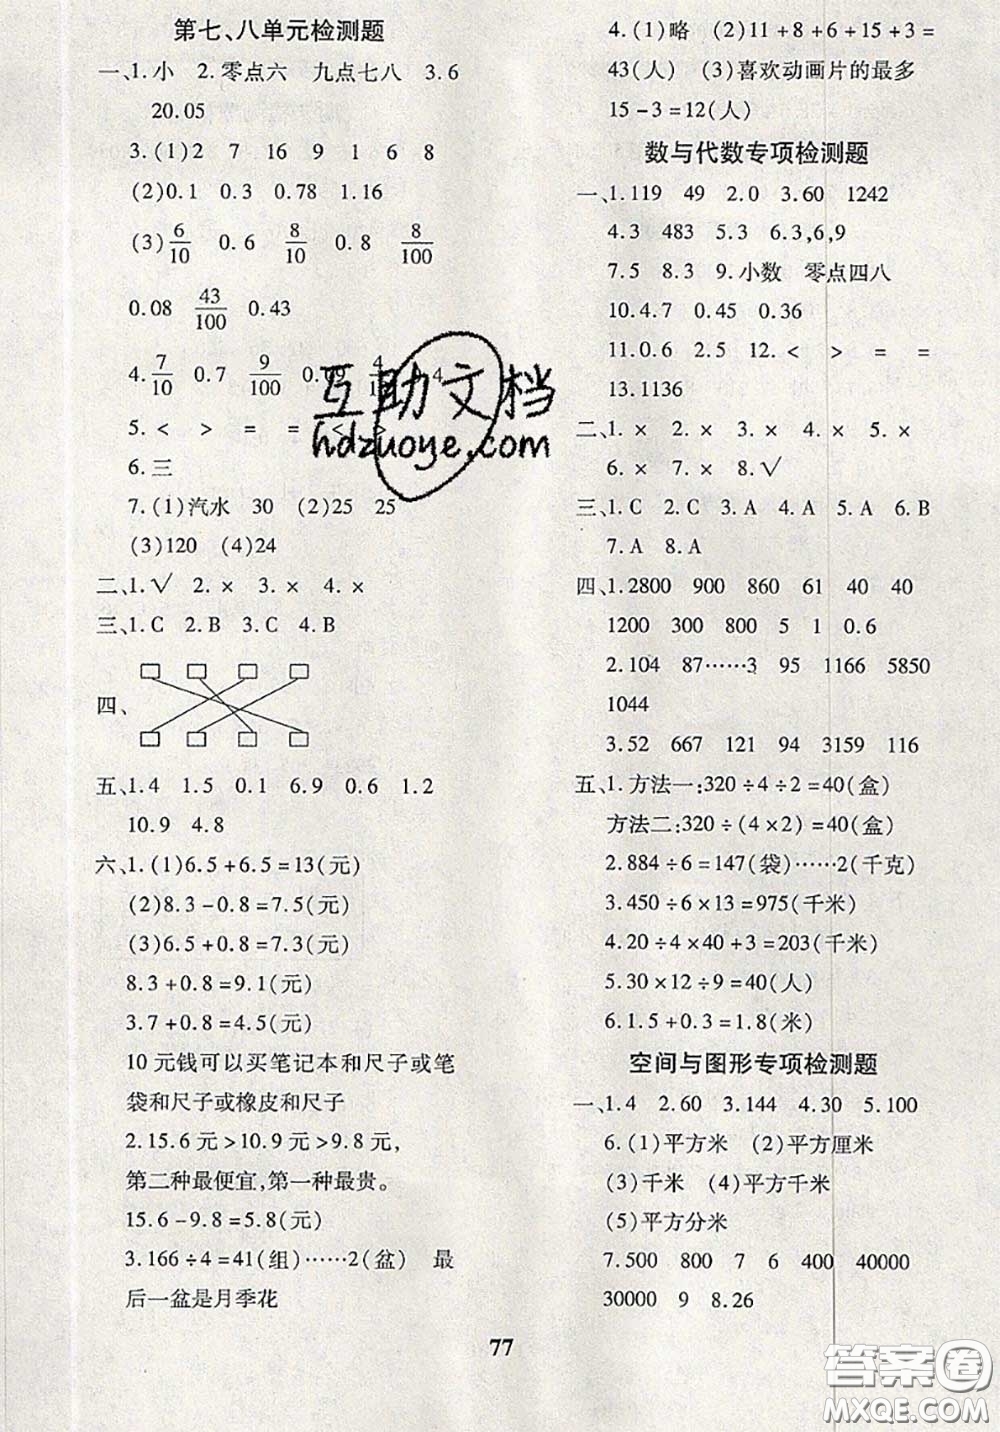 第七、八单元检测题
一、1.小 2.零点六 九点七八 3.6
20.05
3.(1)2 7 16 9 1 6 8
(2)0.1 0.3 0.78 1.16
(3)6/10 0.6 8/10 0.8 8/100
0.08 43/100 0.43
4.7/10 0.7 9/100 0.09 4
5.< > = = < >
6.三
7.(1)汽水 30 (2)25 25
(3)120 (4)24
二、1.√ 2.× 3.× 4.×
三、1.C 2.B 3.C 4.B
四、
五、1.4 1.5 0.1 6.9 0.6 1.2
10.9 4.8
六、1.(1)6.5+6.5=13(元)
(2)8.3-0.8=7.5(元)
(3)6.5+0.8=7.3(元)
8.3+0.8=9.1(元)
3.7+0.8=4.5(元)
10元钱可以买笔记本和尺子或笔
袋和尺子或橡皮和尺子
2.15.6元>10.9元>9.8元,
第二种最便宜,第一种最贵。
15.6-9.8=5.8(元)
3.166÷4=41(组)……2(盆) 最
后一盆是月季花
4.(1)略 (2)11+8+6+15+3=
43(人) (3)喜欢动画片的最多
15-3=12(人)
数与代数专项检测题
一、1.119 49 2.0 3.60 1242
4.3 483 5.3 6.3,6,9
7.5 8.3 9.小数 零点四八
10.4.7 0.45 0.36
11.0.6 2.5 12.< > = =
13.1136
二、1.× 2.× 3.× 4.× 5.×
6.× 7.× 8.√
三、1.C 2.C 3.A 4.A 5.A 6.B
7.A 8.A
四、1.2800 900 860 61 40 40
1200 300 800 5 1 0.6
2.104 87……3 95 1166 5850
1044
3.52 667 121 94 3159 116
五、1.方法一:320÷4÷2=40(盒)
方法二:320÷(4×2)=40(盒)
2.884÷6=147(袋)……2(千克)
3.450÷6×13=975(千米)
4.20÷4×40+3=203(千米)
5.30×12÷9=40(人)
6.1.5+0.3=1.8(米)
空间与图形专项检测题
一、1.4 2.60 3.144 4.30 5.100
6.(1)平方米 (2)平方厘米
(3)千米 (4)平方千米
(5)平方分米
7.500 800 7 6 400 40000
30000 9 8.26
77
互助文档
hdzuoye.com
答案卷
MXQE.COM